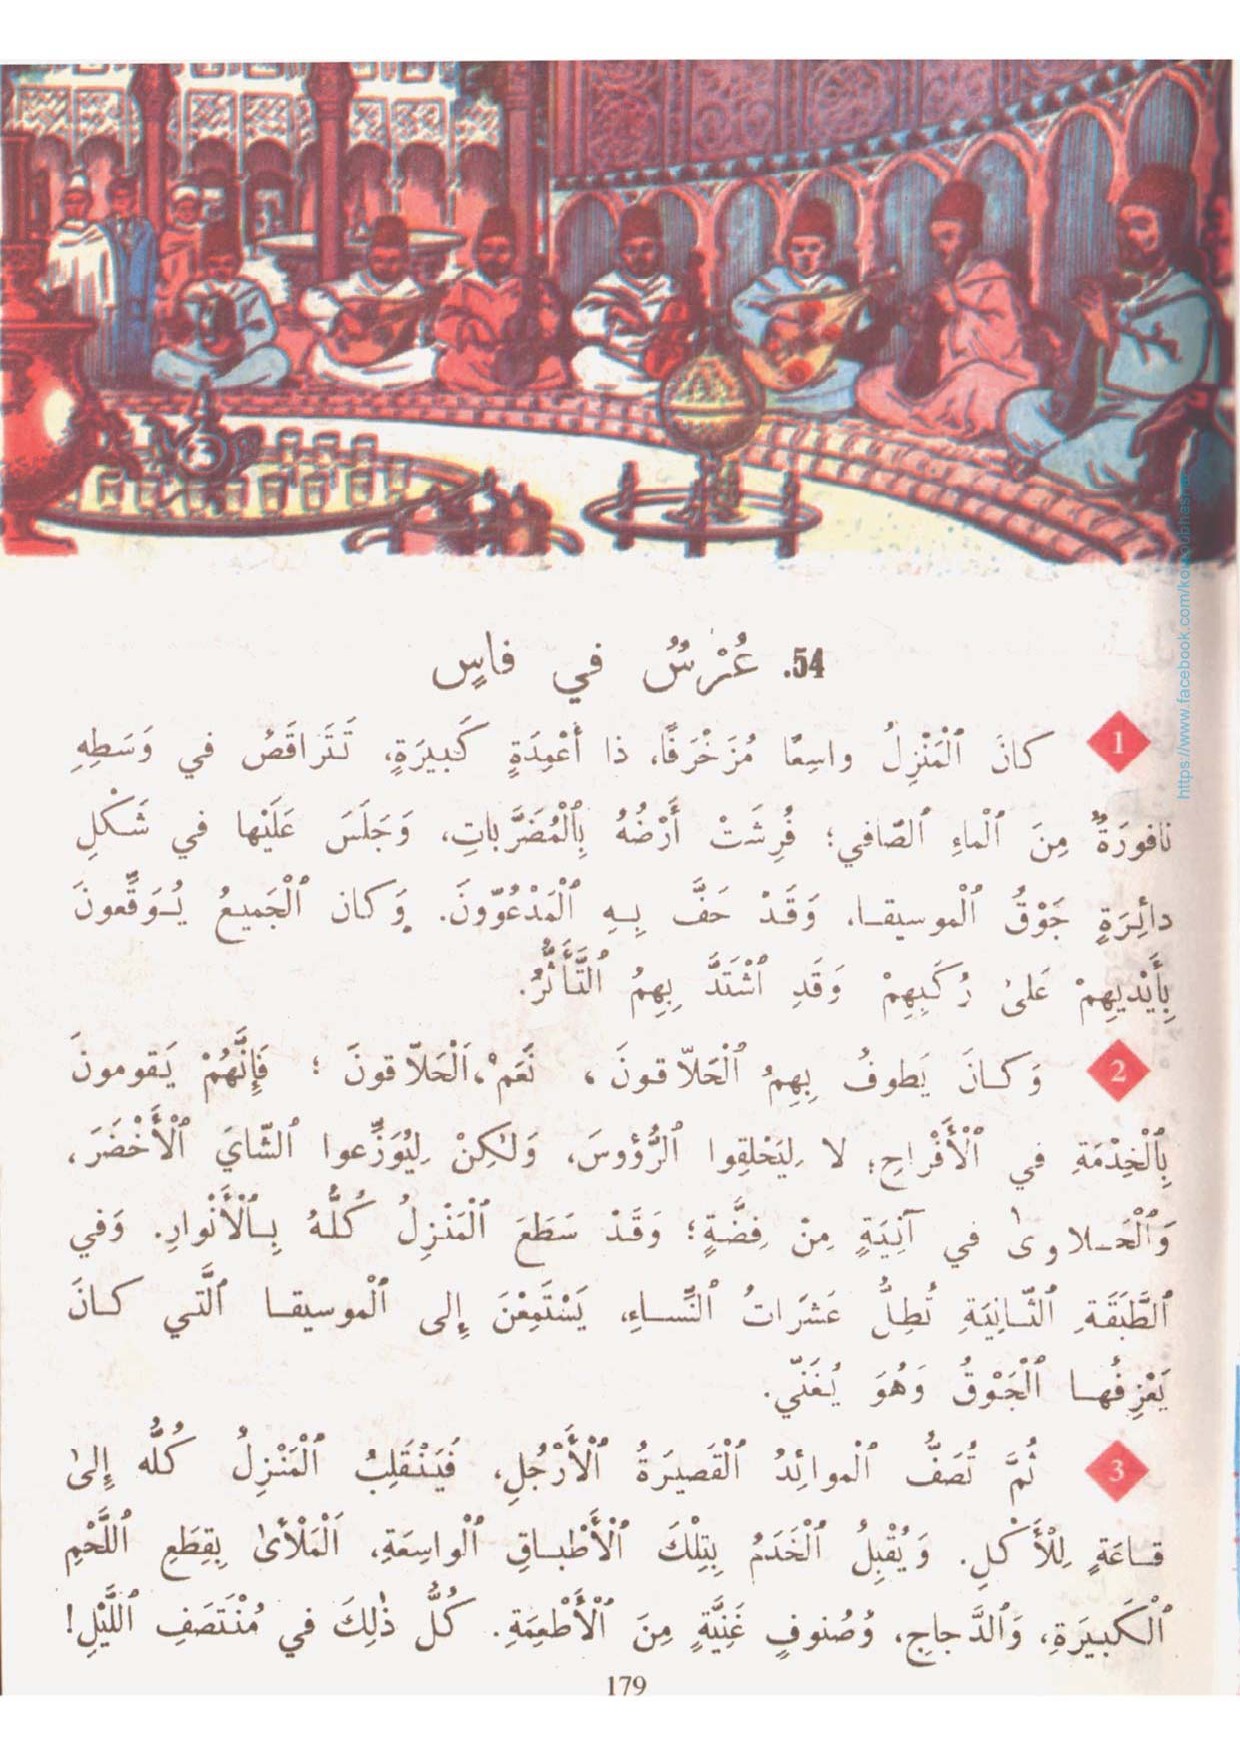 54. عُرْسٌ في فاسٍ
1 كانَ ٱلْمَنْزِلُ واسِعًا مُزَخْرَفًا، ذا أَعْمِدَةٍ كَبيرَةٍ، تَتَراقَصُ في وَسَطِهِ
نافورَةٌ مِنَ ٱلْماءِ ٱلصّافي؛ فُرِشَتْ أَرْضُهُ بِٱلْمُضَرَّباتِ، وَجَلَسَ عَلَيْها في شَكْلِ
دائِرَةٍ جَوْقُ ٱلْموسيقا، وَقَدْ حَفَّ بِهِ ٱلْمَدْعُوّونَ. وَكان ٱلْجَميعُ يُوَقِّعونَ
بِأَيْديهِمْ عَلىٰ رُكَبِهِمْ وَقَدِ ٱشْتَدَّ بِهِمُ ٱلتَّأَثُّرُ.
2 وَكانَ يَطوفُ بِهِمُ ٱلْحَلاّقونَ، نَعَمْ، اَلْحَلاّقونَ؛ فَإِنَّهُمْ يَقومونَ
بِٱلْخِدْمَةِ في ٱلْأَفْراحِ؛ لا لِيَحْلِقوا ٱلرُّؤوسَ، وَلٰكِنْ لِيُوَزِّعوا ٱلشّايَ ٱلْأَخْضَرَ،
وَٱلْحَلاوىٰ في آنِيَةٍ مِنْ فِضَّةٍ؛ وَقَدْ سَطَعَ ٱلْمَنْزِلُ كُلُّهُ بِٱلْأَنْوارِ. وَفي
ٱلطَّبَقَةِ ٱلثّانِيَةِ تُطِلُّ عَشَراتُ ٱلنِّساءِ، يَسْتَمِعْنَ إِلى ٱلْموسيقا ٱلَّتي كانَ
يَعْزِفُها ٱلْجَوْقُ وَهُوَ يُغَنّي.
3 ثُمَّ تُصَفُّ ٱلْموائِدُ ٱلْقَصيرَةُ ٱلْأَرْجُلِ، فَيَنْقَلِبُ ٱلْمَنْزِلُ كُلُّه إِلىٰ
قاعَةٍ لِلْأَكْلِ. وَيُقْبِلُ ٱلْخَدَمُ بِتِلْكَ ٱلْأَطْباقِ ٱلْواسِعَةِ، اَلْمَلْأىٰ بِقِطَعِ ٱللَّحْمِ
ٱلْكَبيرَةِ، وَٱلدَّجاجِ، وَصُنوفٍ غَنِيَّةٍ مِنَ ٱلْأَطْعِمَةِ. كُلُّ ذٰلِكَ في مُنْتَصَفِ ٱللَّيْلِ!
179